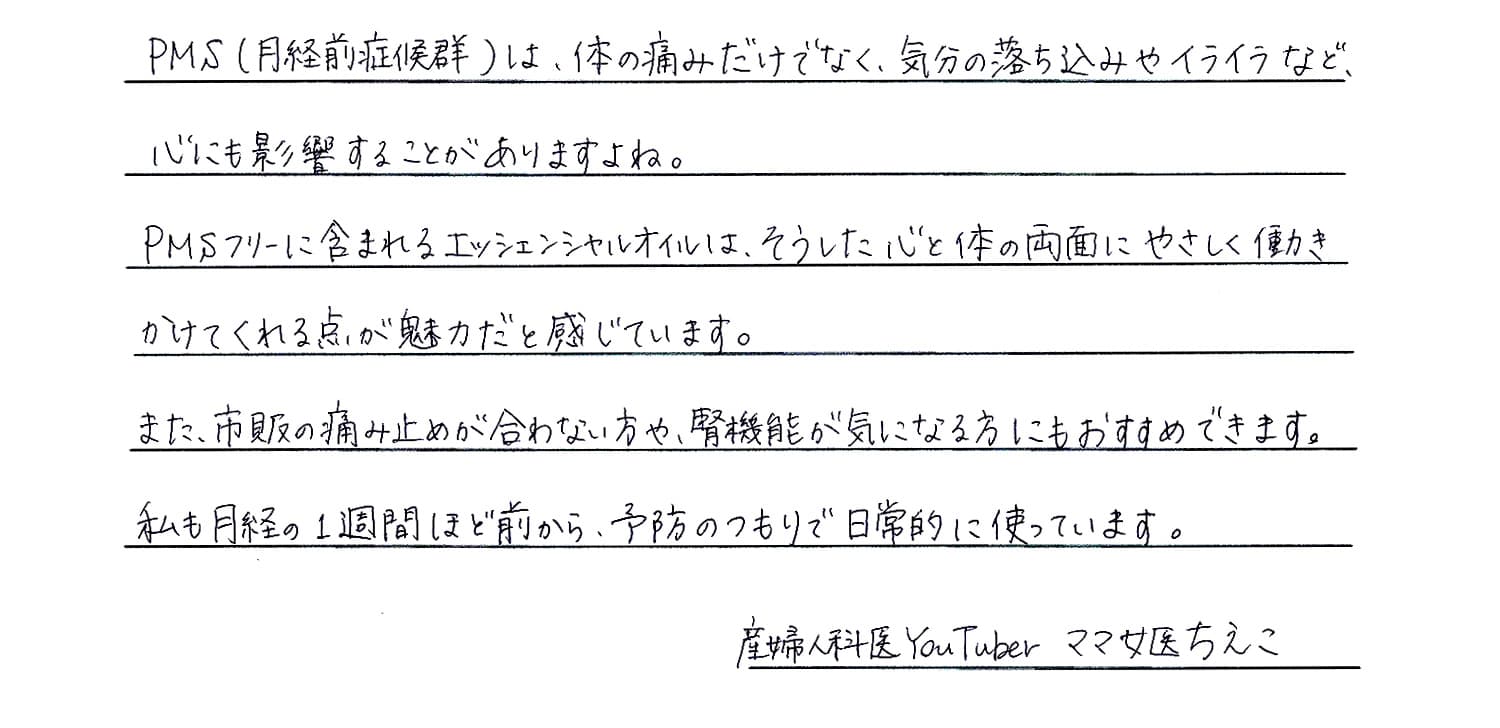 PMS(月経前症候群)は、体の痛みだけでなく、気分の落ち込みやイライラなど、
心にも影響することがありますよね。
PMSフリーに含まれるエッシェンシャルオイルは、そうした心と体の両面にやさしく働き
かけてくれる点が魅力だと感じています。
また、市販の痛み止めが合わない方や、腎機能が気になる方にもおすすめできます。
私も月経の1週間ほど前から、予防のつもりで日常的に使っています。
産婦人科医YouTuber ママ女医ちえこ